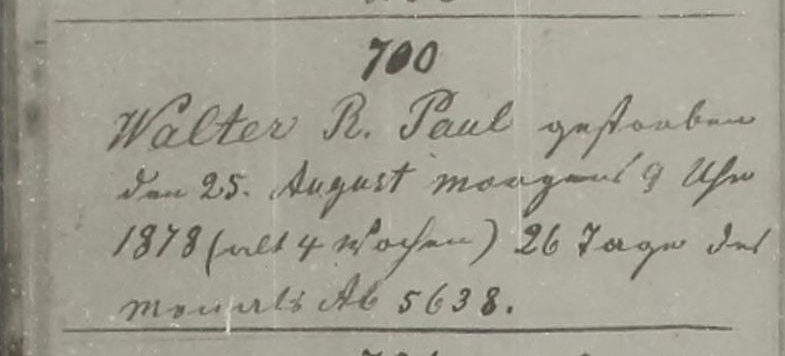 700
Walter R. Paul gestorben
den 25. August morgens 9 Uhr
1878 (alt 4 Wochen) 26 Tage des
Monats Ab 5638.